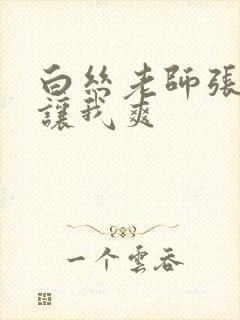 白絲老師張
讓我爽
一个雲吞